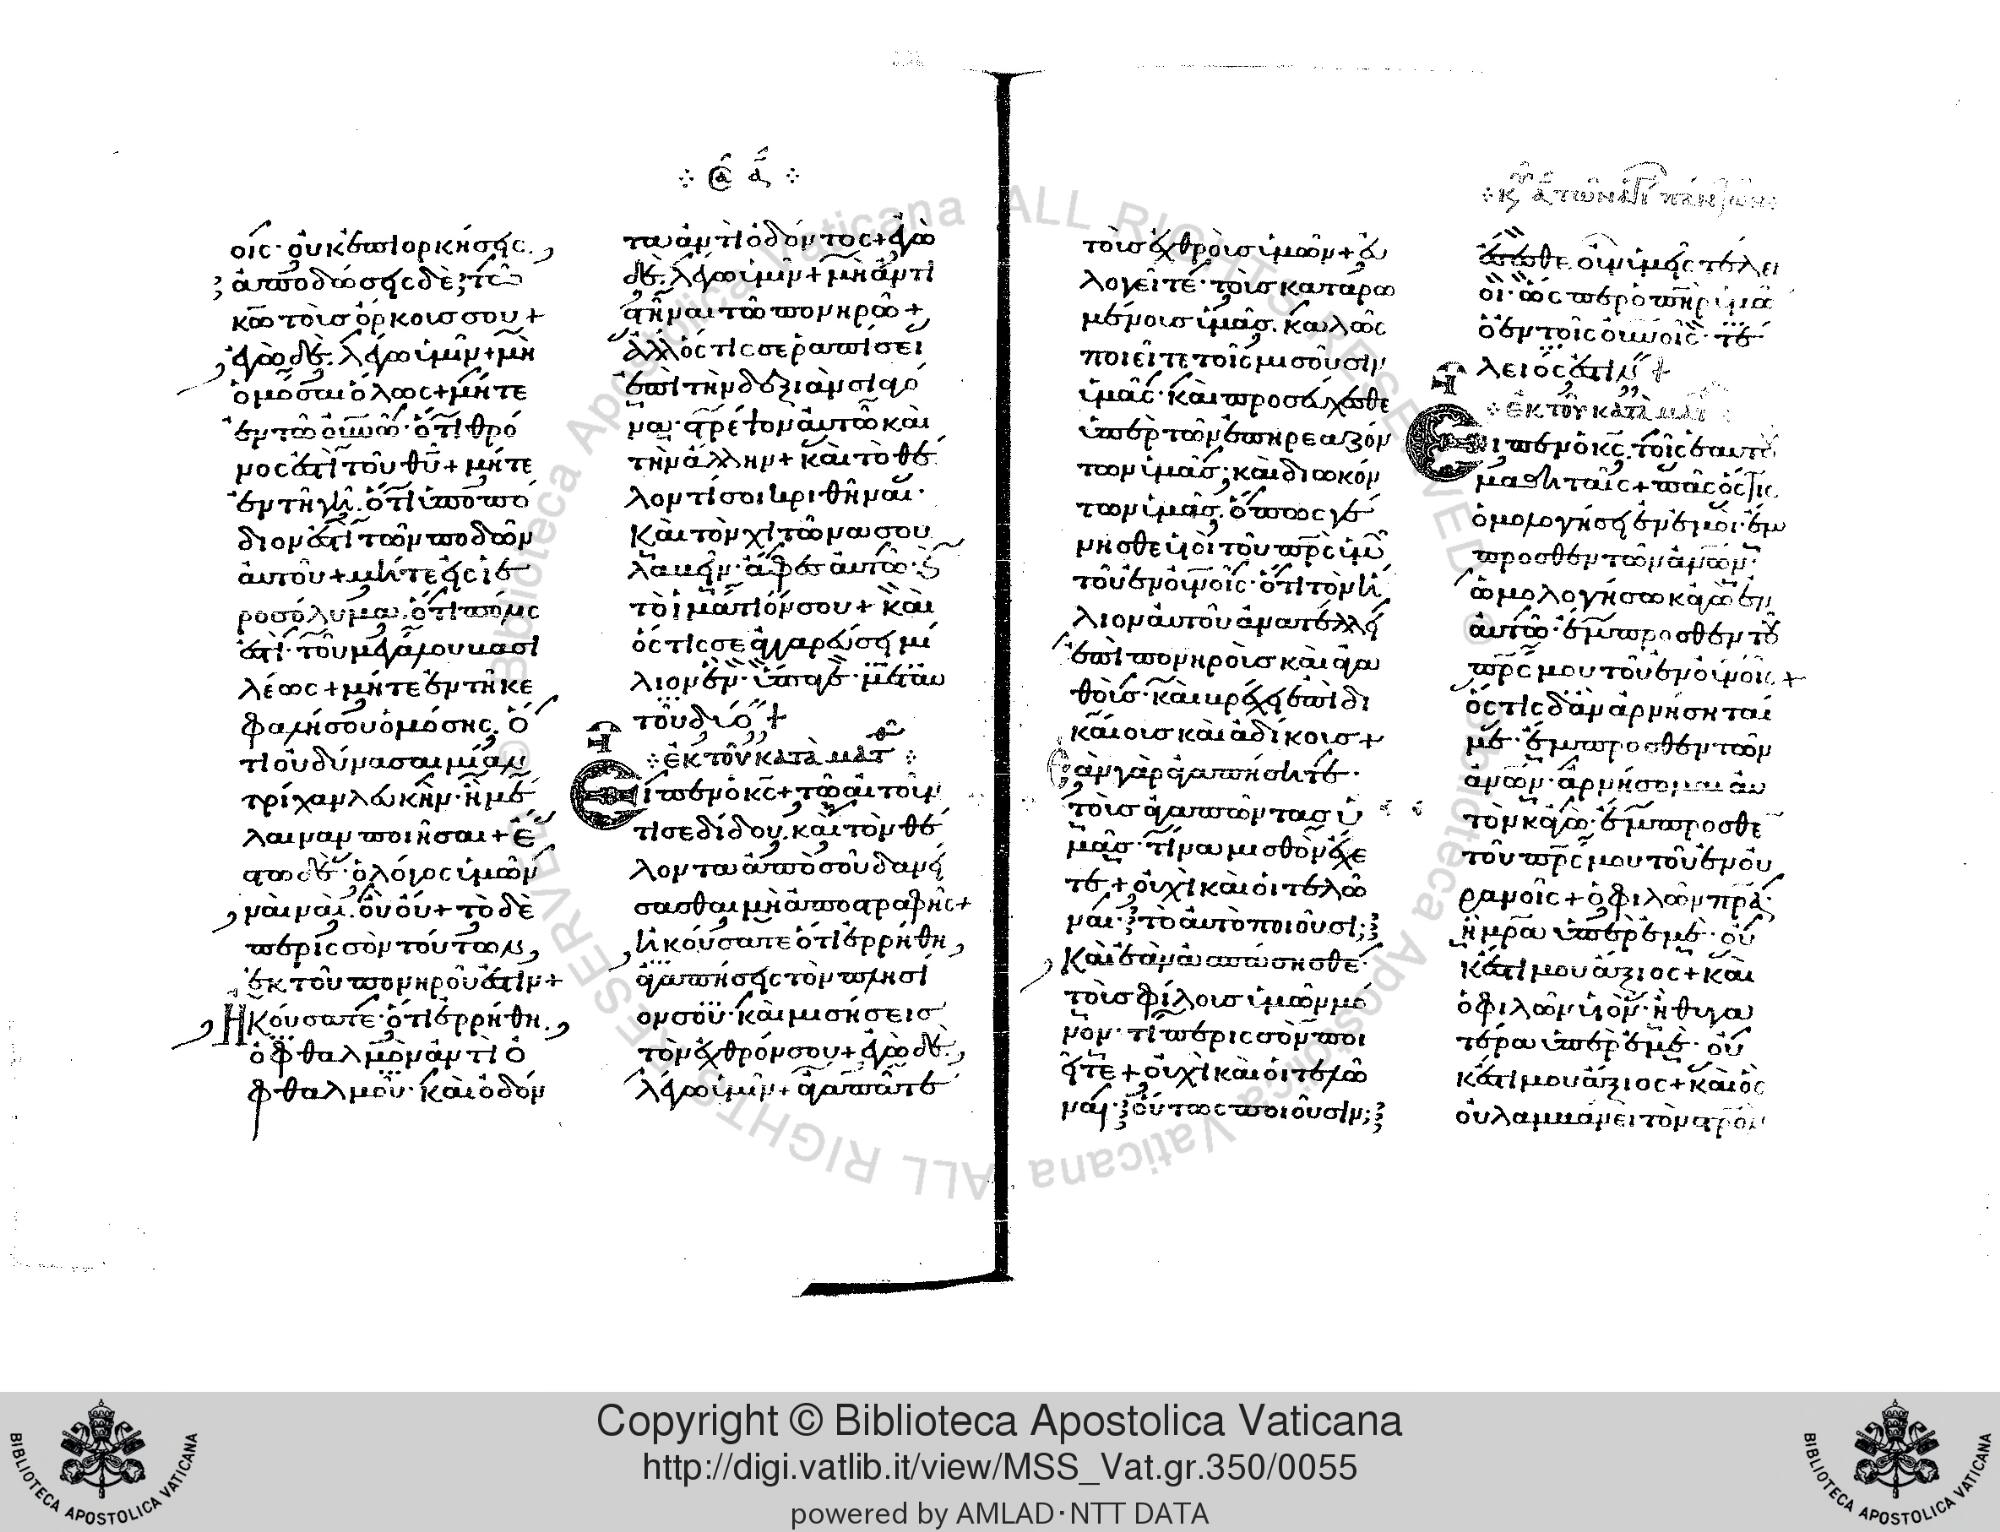 οις· οὐκ ἐπιορκήσεις·
ἀποδώσεις δὲ τῶ
κω τοὺς ὅρκους σου +
ἐγὼ δὲ λέγω ὑμῖν + μὴ
ὀμόσαι ὅλως + μήτε
ἐν τῶ οὐνω· ὅτι θρό
νος ἐστὶ τοῦ θυ + μήτε
ἐν τῆ γῆ· ὅτι ὑποπό
διον ἐστὶ τῶν ποδῶν
αὐτοῦ + μήτε εἰς ἱε
ροσόλυμα· ὅτι πόλις
ἐστὶ· τοῦ μεγάλου βασι
λέως + μήτε ἐν τῆ κε
φαλῆ σου ὀμόσης· ὅ
τι οὐ δύνασαι μίαν
τρίχα λευκὴν· ἢ μέ
λαιναν ποιῆσαι + ἔ
στω δὲ· ὁ λόγος ὑμῶν
ναὶ ναὶ· οὒ οὔ + τὸ δὲ
περισσὸν τούτων,
ἐκ τοῦ πονηροῦ ἐστὶν +
Ἠκούσατε· ὅτι ἐρρήθη·
ὀφθαλμὸν ἀντὶ ὀ
φθαλμοῦ· καὶ ὀδόν
⁘ ⁘
τα ἀντὶ ὀδόντος + ἐγὼ
δὲ λέγω ὑμῖν + μὴ ἀντι
στῆναι τῶ πονηρῶ +
ἀλλ' ὅστις σε ραπίσει
ἐπὶ τὴν δεξιὰν σιαγό
να· στρέψον αὐτῶ καὶ
τὴν ἄλλην + καὶ τῶ θέ
λοντί σοι κριθῆναι·
καὶ τὸν χιτῶνα σου
λαβεῖν· ἄφες αὐτῶ· καὶ
τὸ ἱμάτιόν σου + καὶ
ὅστις σε ἀγγαρεύσει μί
λιον ἕν· ὕπαγε· μετ' αυ
τοῦ δύο +
⁘ ἐκ τοῦ κατὰ ματθ ⁘
Εἶπεν ὁ κς + τῶ αἰτοῦν
τι σε δίδου· καὶ τὸν θέ
λοντα ἀπὸ σοῦ δανεί
σασθαι μὴ ἀποστραφῆς +
ἠκούσατε ὅτι ἐρρήθη,
ἀγαπήσεις τὸν πλησί
ον σου· καὶ μισήσεις
τὸν ἐχθρόν σου + ἐγὼ δὲ
λέγω ὑμῖν + ἀγαπᾶτε
τοὺς ἐχθροὺς ὑμῶν + εὐ
λογεῖτε· τοὺς καταρω
μένους ὑμᾶς· καλῶς
ποιεῖτε τοῖς μισοῦσιν
ὑμᾶς· καὶ προσεύχεσθε
ὑπὲρ τῶν ἐπηρεαζόν
των ὑμᾶς· καὶ διωκόν
των ὑμᾶς· ὅπως γέ
νησθε υἱοὶ τοῦ πρς ὑμῶ
τοῦ ἐν οὐνοῖς· ὅτι τὸν ἥ
λιον αὐτοῦ ἀνατέλλει
ἐπὶ πονηροὺς καὶ ἀγα
θούς· καὶ βρέχει ἐπὶ δι
καίους καὶ ἀδίκους +
ἐὰν γὰρ ἀγαπήσητε·
τοὺς ἀγαπῶντας ὑ
μᾶς· τίνα μισθὸν ἔχε
τε + οὐχὶ καὶ οἱ τελῶ
ναι· τὸ αὐτὸ ποιοῦσι;
καὶ ἐὰν ἀσπάσησθε·
τοὺς φίλους ὑμῶν μό
νον· τί περισσὸν ποι
εῖτε + οὐχὶ καὶ οἱ τελῶ
ναι· οὕτως ποιοῦσιν;
ἔσεσθε οὖν ὑμεῖς τέλει
οι· ὥσπερ ὁ πηρ ὑμῶ
ὁ ἐν τοῖς οὐνοῖς· τέ
λειός ἐστιν +
⁘ ἐκ τοῦ κατὰ ματ ⁘
Εἶπεν ὁ κς τοῖς ἑαυτοῦ
μαθηταῖς + πᾶς ὅστις
ὁμολογήσει ἐν ἐμοὶ· ἔμ
προσθεν τῶν ἀνων·
ὁμολογήσω κἀγὼ ἐν
αὐτῶ· ἔμπροσθεν τοῦ
πρς μου τοῦ ἐν οὐνοῖς +
ὅστις δ' ἂν ἀρνήσηται
με· ἔμπροσθεν τῶν
ἀνων· ἀρνήσομαι αὐ
τὸν κἀγὼ· ἔμπροσθε
τοῦ πρς μου τοῦ ἐν οὐ
ρανοῖς + ὁ φιλῶν πρα·
ἢ μρα ὑπὲρ ἐμὲ· οὐ
κ ἔστι μου ἄξιος + καὶ
ὁ φιλῶν υἱὸν· ἢ θυγα
τέρα ὑπὲρ ἐμὲ· οὐ
κ ἔστι μου ἄξιος + καὶ ὃς
οὐ λαμβάνει τὸν στρον
Copyright © Biblioteca Apostolica Vaticana
http://digi.vatlib.it/view/MSS_Vat.gr.350/0055
powered by AMLAD·NTT DATA
BIBLIOTECA APOSTOLICA VATICANA
BIBLIOTECA APOSTOLICA VATICANA